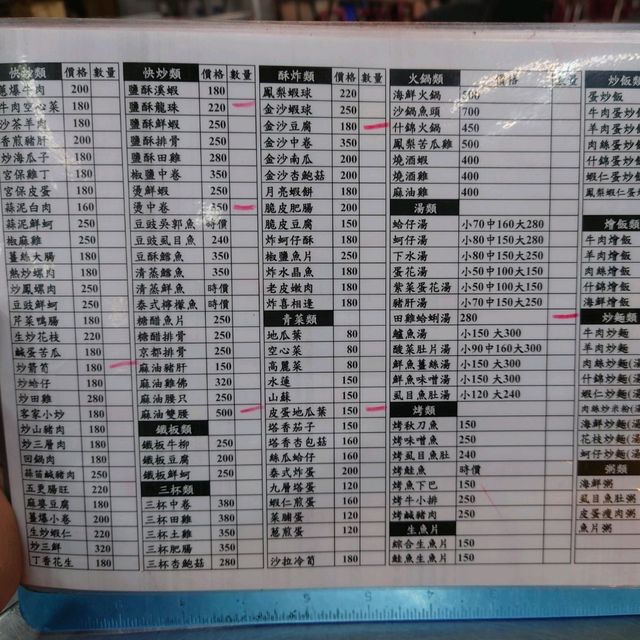 快炒類 價格 數量
蔥爆牛肉 200
牛肉空心菜 180
沙茶羊肉 180
香煎豬肝 180
炒海瓜子 180
宮保雞丁 180
宮保皮蛋 180
蒜泥白肉 160
蒜泥鮮蚵 250
椒麻雞 250
薑絲大腸 180
熱炒螺肉 180
炒鳳螺肉 250
豆豉鮮蚵 250
芹菜鴨腸 180
生炒花枝 220
鹹蛋苦瓜 180
炒箭筍 180
炒蛤仔 180
炒田雞 280
客家小炒 180
炒山豬肉 180
炒三層肉 180
回鍋肉 180
蒜苗鹹豬肉 250
五更腸旺 220
麻婆豆腐 180
薑爆小卷 200
生炒蝦仁 220
炒三鮮 320
丁香花生 180
快炒類 價格 數量
鹽酥溪蝦 180
鹽酥龍珠 220
鹽酥鮮蝦 250
鹽酥排骨 250
鹽酥田雞 280
椒鹽中卷 350
燙鮮蝦 250
燙中卷 350
豆豉吳郭魚 時價
豆豉虱目魚 240
豆酥鱈魚 350
清蒸鱈魚 350
清蒸鮮魚 時價
泰式檸檬魚 時價
糖醋魚片 250
糖醋排骨 250
京都排骨 250
麻油豬肝 150
麻油雞佛 320
麻油腰只 250
麻油雙腰 500
鐵板類
鐵板牛柳 250
鐵板豆腐 200
鐵板鮮蚵 250
三杯類
三杯中卷 380
三杯田雞 380
三杯土雞 350
三杯肥腸 350
三杯杏鮑菇 280
酥炸類 價格 數量
鳳梨蝦球 220
金沙蝦球 250
金沙豆腐 180
金沙中卷 350
金沙南瓜 200
金沙杏鮑菇 200
月亮蝦餅 180
脆皮肥腸 200
脆皮豆腐 150
炸蚵仔酥 180
椒鹽魚片 250
炸水晶魚 180
老皮嫩肉 180
炸喜相逢 180
青菜類
地瓜葉 80
空心菜 80
高麗菜 80
水蓮 150
山蘇 150
皮蛋地瓜葉 150
塔香茄子 150
塔香杏包菇 160
絲瓜蛤仔 160
泰式炸蛋 200
九層塔蛋 120
蝦仁煎蛋 160
菜脯蛋 120
蔥煎蛋 120
沙拉冷筍 180
火鍋類 價格 數量
海鮮火鍋 500
沙鍋魚頭 700
什錦火鍋 450
鳳梨苦瓜雞 500
燒酒蝦 400
燒酒雞 400
麻油雞 400
湯類
蛤仔湯 小70中160大280
蚵仔湯 小80中150大280
下水湯 小80中150大200
蛋花湯 小50中100大150
紫菜蛋花湯 小50中100大150
豬肝湯 小70中150大250
田雞蛤蜊湯 280
鱸魚湯 小150 大300
酸菜肚片湯 小90中160大300
鮮魚薑絲湯 小150 大300
鮮魚味噌湯 小150 大300
虱目魚肚湯 小120 大240
烤類
烤秋刀魚 150
烤味噌魚 250
烤虱目魚肚 240
烤鮭魚 時價
烤魚下巴 150
烤牛小排 250
烤鹹豬肉 250
生魚片
綜合生魚片 150
鮭魚生魚片 150
炒飯類
蛋炒飯
牛肉蛋炒飯
羊肉蛋炒飯
肉絲蛋炒飯
什錦蛋炒飯
蝦仁蛋炒飯
鳳梨蝦仁蛋
燴飯類
牛肉燴飯
羊肉燴飯
肉絲燴飯
什錦燴飯
海鮮燴飯
炒麵類
牛肉炒麵
羊肉炒麵
肉絲炒麵(
什錦炒麵(
蝦仁炒麵(
肉絲炒米粉(
海鮮炒麵(
花枝炒麵(
蚵仔炒麵(
粥類
海鮮粥
虱目魚肚粥
皮蛋瘦肉粥
魚片粥